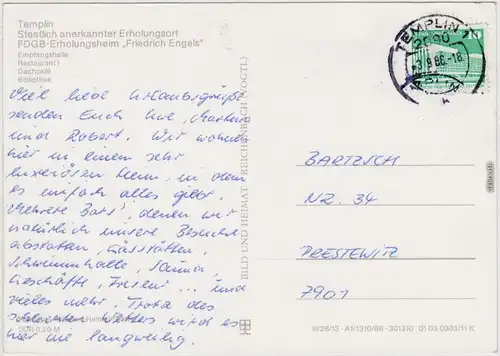 Templin
Staatlich anerkannter Erholungsort
FDGB-Erholungsheim „Friedrich Engels"
Empfangshalle
Restaurant I
Dachcafé
Bibliothek
Viel liebe Urlaubsgrüße
senden Euch hier
und Robert. Wir wohnen
hier in einem sehr
luxeriösen Heim, in dem
es einfach alles gibt.
Mehrere Bars, denen wir
natürlich unsere Besuche
abstatten, Gaststätten,
Schwimmhalle, Sauna,
Geschäfte, Friseur ... und
vieles mehr. Trotz des
schlechten Wetters wird es
hier nie langweilig.
DDR 0,20 M
BILD UND HEIMAT REICHENBACH (VOGTL)
TEMPLIN
2090
BARTZSCH
NR. 34
PRESTEWITZ
7901
III/26/13 A1/1310/86 301310 01 03 0303/11 K